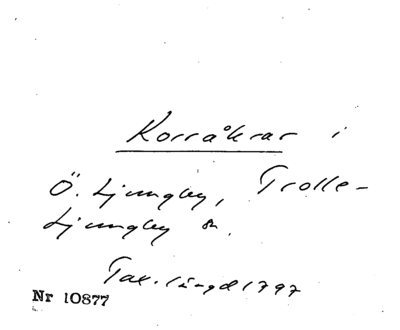 Korråkrar i
Ö. Ljungby, Trolle-
Ljungby sn.
Tax. längd 1797
Nr 10877